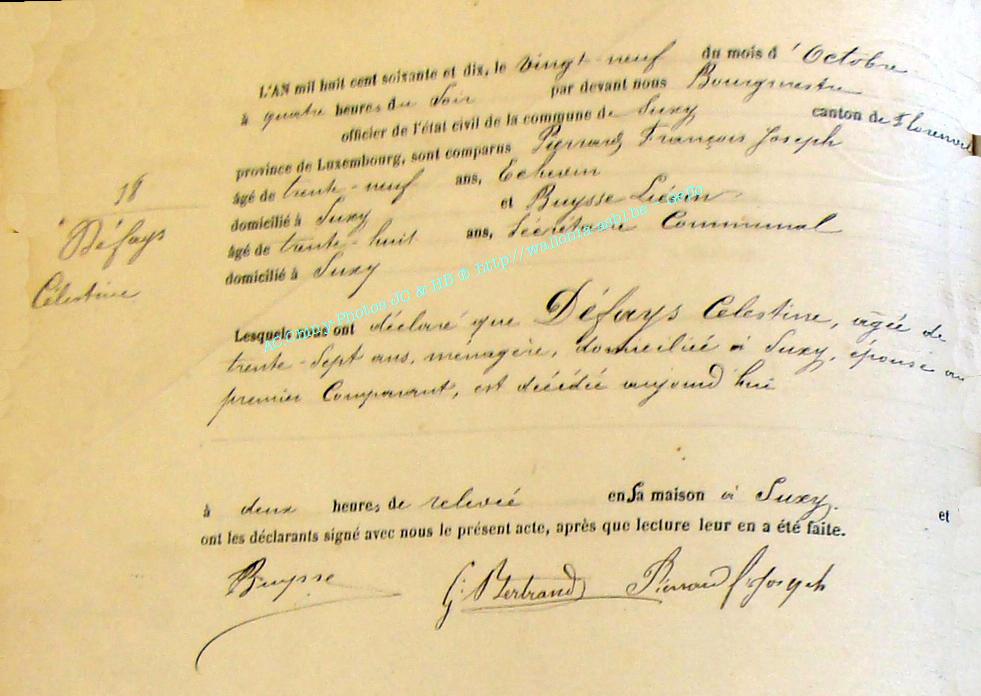 L'AN mil huit cent soixante et dix, le vingt-neuf du mois d'Octobre
à quatre heures du Soir par devant nous Bourgmestre
officier de l'état civil de la commune de Suxy canton de Florenville
province de Luxembourg, sont comparus Pierrard François Joseph
âgé de trente-neuf ans, Echevin
domicilié à Suxy et Buysse
âgé de trente-huit ans, Sécrétaire Communal
domicilié à Suxy
18
Défays
Célestine
Lesquels nous ont déclaré que Défays Célestine, agée de
trente-sept ans, ménagère, domiciliée à Suxy, épouse au
premier Comparant, est décédée aujourd'hui
à deux heures de relevée en sa maison à Suxy. et
ont les déclarants signé avec nous le présent acte, après que lecture leur en a été faite.
Buysse G. Bertrand Pierrard f. joseph
Photos JC & HB ® http://wallonia-asbl.be